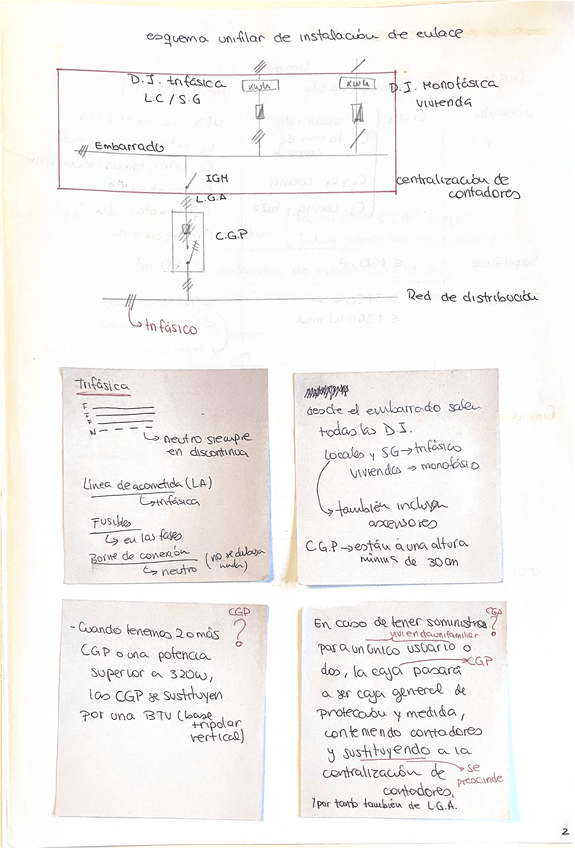 esquema unifilar de instalación de enlace
D.I. trifásica
L.C / S.G
KWh
KWh
D.I. Monofásica
vivienda
Embarrado
IGM
centralización de
contadores
L.G.A
C.G.P
Red de distribución
trifásico
trifásica
F
F
F
N
neutro siempre
en discontinua
Línea de acometida (LA)
trifásica
Fusibles
en las fases
Borne de conexión
neutro (no se dibuja
nada)
desde el embarrado salen
todas las D.I.
locales y SG → trifásico
viviendas → monofásio
también incluyen
ascensores
C.G.P → están a una altura
mínima de 30cm
CGP
?
- Cuando tenemos 2 o más
CGP o una potencia
superior a 320W,
las CGP se sustituyen
por una BTV (base
tripolar
vertical)
CGP
?
En caso de tener suministros
vivienda unifamiliar
para un único usuario o
dos, la caja pasará
CGP
a ser caja general de
protección y medida,
conteniendo contadores
y sustituyendo a la
se
prescinde
centralización de
contadores,
y por tanto también de L.G.A.
2